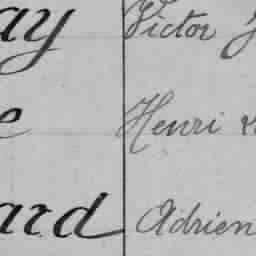 ay Victor
e Henri
ard Adrien